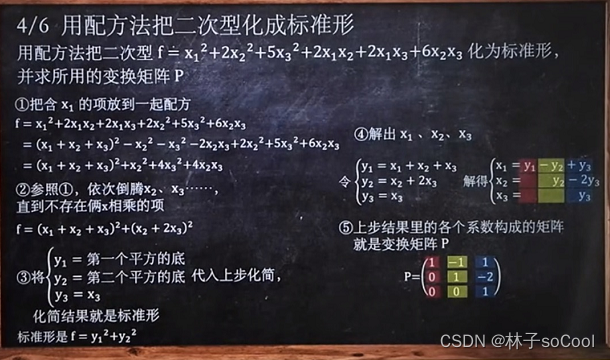 4/6 用配方法把二次型化成标准形
用配方法把二次型 f = x₁²+2x₂²+5x₃²+2x₁x₂+2x₁x₃+6x₂x₃ 化为标准形,
并求所用的变换矩阵 P
①把含 x₁ 的项放到一起配方
f = x₁²+2x₁x₂+2x₁x₃+2x₂²+5x₃²+6x₂x₃
= (x₁ + x₂ + x₃)² − x₂² − x₃² − 2x₂x₃+2x₂² +5x₃²+6x₂x₃
= (x₁ + x₂ + x₃)²+x₂²+4x₃²+4x₂x₃
②参照①，依次倒腾x₂、x₃……,
直到不存在俩x相乘的项
f = (x₁ + x₂ + x₃)²+(x₂ + 2x₃)²
③将 y₁ = 第一个平方的底
y₂ = 第二个平方的底 代入上步化简，
y₃ = x₃
化简结果就是标准形
标准形是 f = y₁²+y₂²
④解出 x₁ 、x₂、x₃
令 y₁ = x₁ + x₂ + x₃
y₂ = x₂ + 2x₃
y₃ = x₃
解得 x₁ = y₁ − y₂ + y₃
x₂ = y₂ − 2y₃
x₃ = y₃
⑤上步结果里的各个系数构成的矩阵
就是变换矩阵 P
P= 1 −1 1
0 1 −2
0 0 1
CSDN @林子soCool